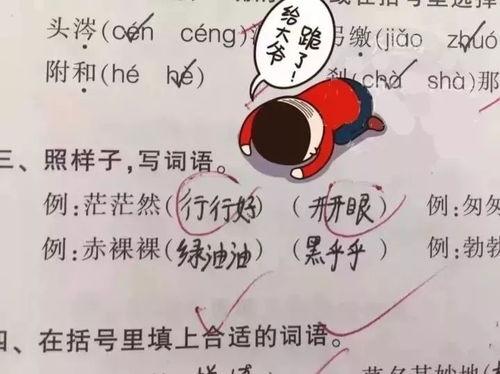 或在括号里选择
头涔(cén céng)
吊缴(jiǎo zhuó
附和(hé hè)
刹(chà shà)那
给大爷
跪了!
三、照样子,写词语。
例:茫茫然(行行好) (开开眼) 例:匆匆
例:赤裸裸(绿油油) (黑乎乎) 例:勃勃
四、在括号里填上合适的词语。
莫名其妙地(